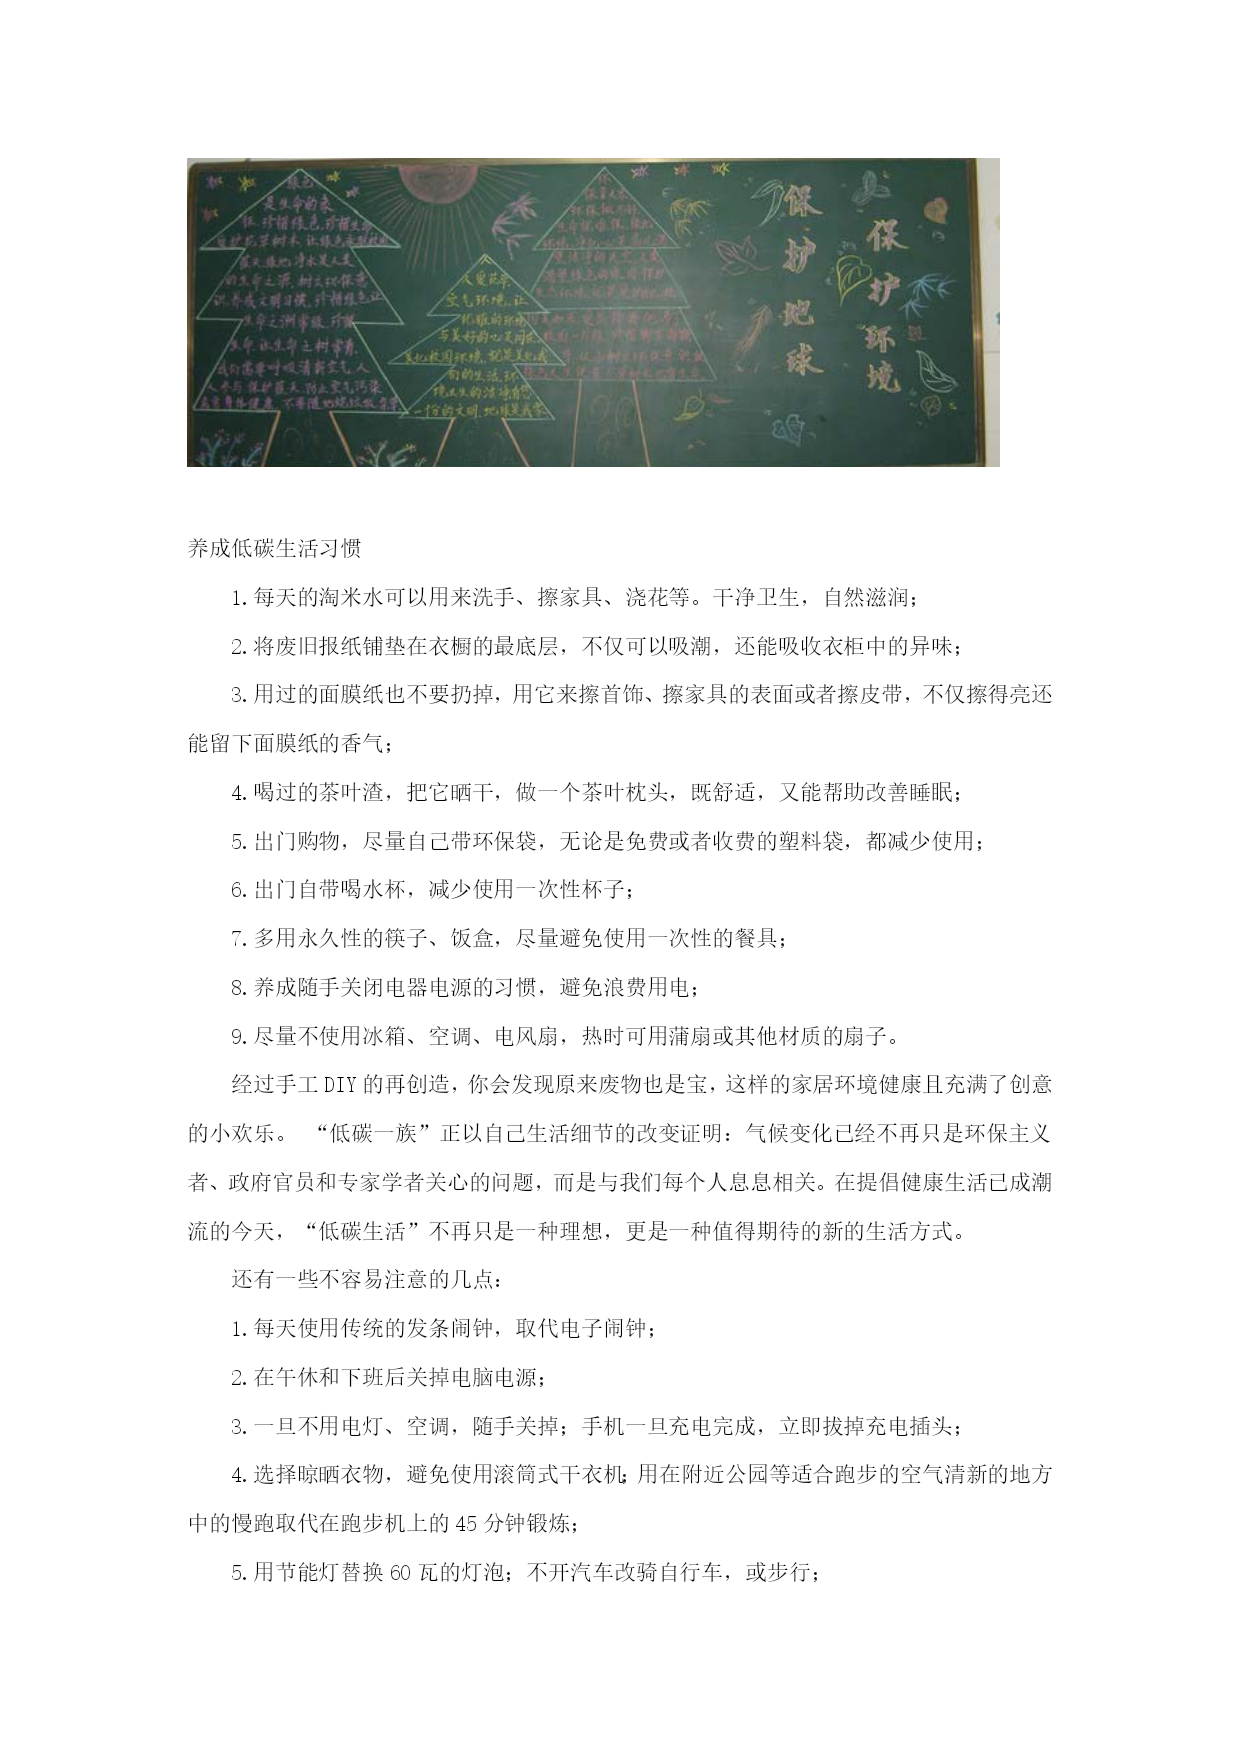 绿色
是生命的象
保护地球
保护环境
养成低碳生活习惯
1.每天的淘米水可以用来洗手、擦家具、浇花等。干净卫生，自然滋润；
2.将废旧报纸铺垫在衣橱的最底层，不仅可以吸潮，还能吸收衣柜中的异味；
3.用过的面膜纸也不要扔掉，用它来擦首饰、擦家具的表面或者擦皮带，不仅擦得亮还
能留下面膜纸的香气；
4.喝过的茶叶渣，把它晒干，做一个茶叶枕头，既舒适，又能帮助改善睡眠；
5.出门购物，尽量自己带环保袋，无论是免费或者收费的塑料袋，都减少使用；
6.出门自带喝水杯，减少使用一次性杯子；
7.多用永久性的筷子、饭盒，尽量避免使用一次性的餐具；
8.养成随手关闭电器电源的习惯，避免浪费用电；
9.尽量不使用冰箱、空调、电风扇，热时可用蒲扇或其他材质的扇子。
经过手工DIY的再创造，你会发现原来废物也是宝，这样的家居环境健康且充满了创意
的小欢乐。 “低碳一族”正以自己生活细节的改变证明：气候变化已经不再只是环保主义
者、政府官员和专家学者关心的问题，而是与我们每个人息息相关。在提倡健康生活已成潮
流的今天，“低碳生活”不再只是一种理想，更是一种值得期待的新的生活方式。
还有一些不容易注意的几点：
1.每天使用传统的发条闹钟，取代电子闹钟；
2.在午休和下班后关掉电脑电源；
3.一旦不用电灯、空调，随手关掉；手机一旦充电完成，立即拔掉充电插头；
4.选择晾晒衣物，避免使用滚筒式干衣机；用在附近公园等适合跑步的空气清新的地方
中的慢跑取代在跑步机上的45分钟锻炼；
5.用节能灯替换60瓦的灯泡；不开汽车改骑自行车，或步行；